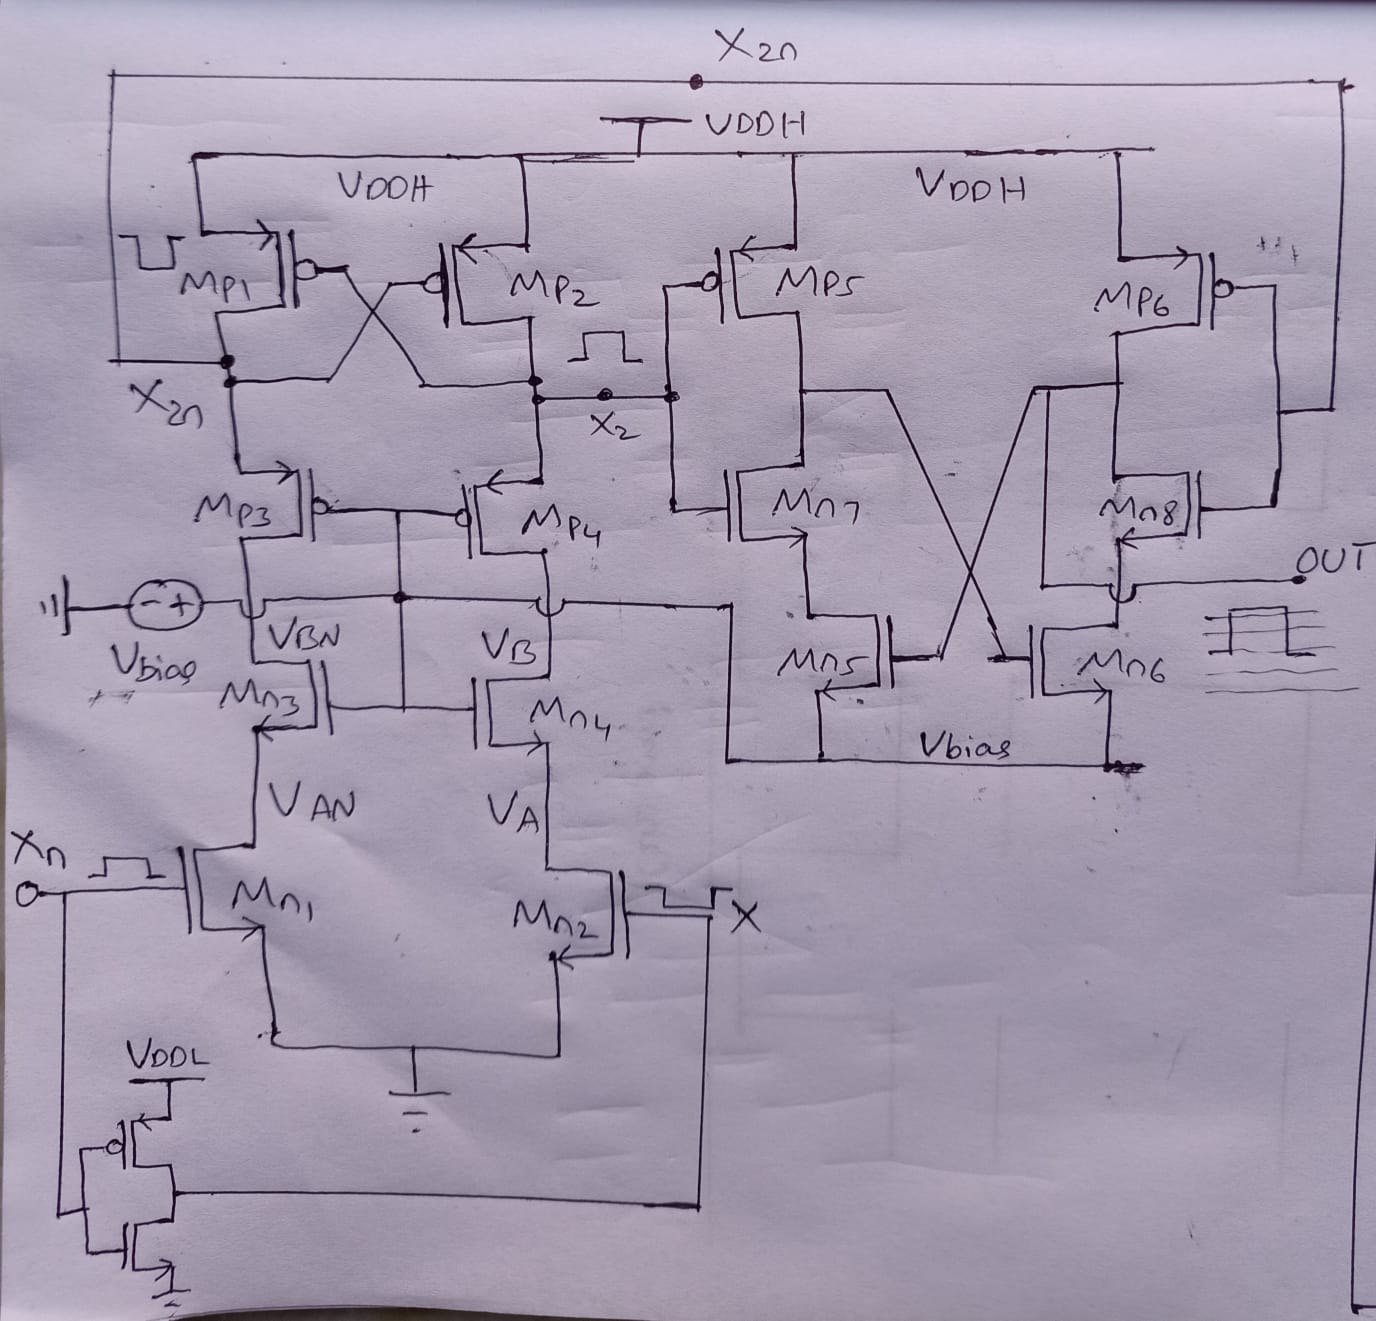 X2n
VDDH
VDDH
VDDH
MP1
MP2
MP5
MP6
X2n
X2
MP3
MP4
Mn7
Mn8
OUT
- +
Vbias
VBN
VB
Mn3
Mn4
Mn5
Mn6
Vbias
VAN
VA
Xn
Mn1
Mn2
X
VDDL